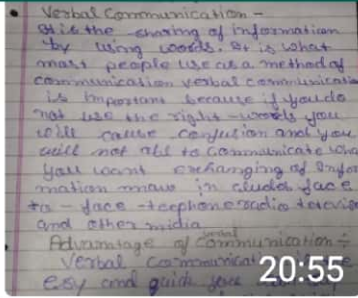 Verbal Communication -
It is the sharing of information
by using words. It is what
most people use as a method of
communication verbal communicatio
is important because if you do
not use the right - words you
will cause confusion and you
will not abl to communicate wha
you want exchanging of Infor
mation may in clude face
to - face - teephone radio televisi
and other midia
Advantage of verbal Communication ÷
Verbal communicat
easy and quick
20:55